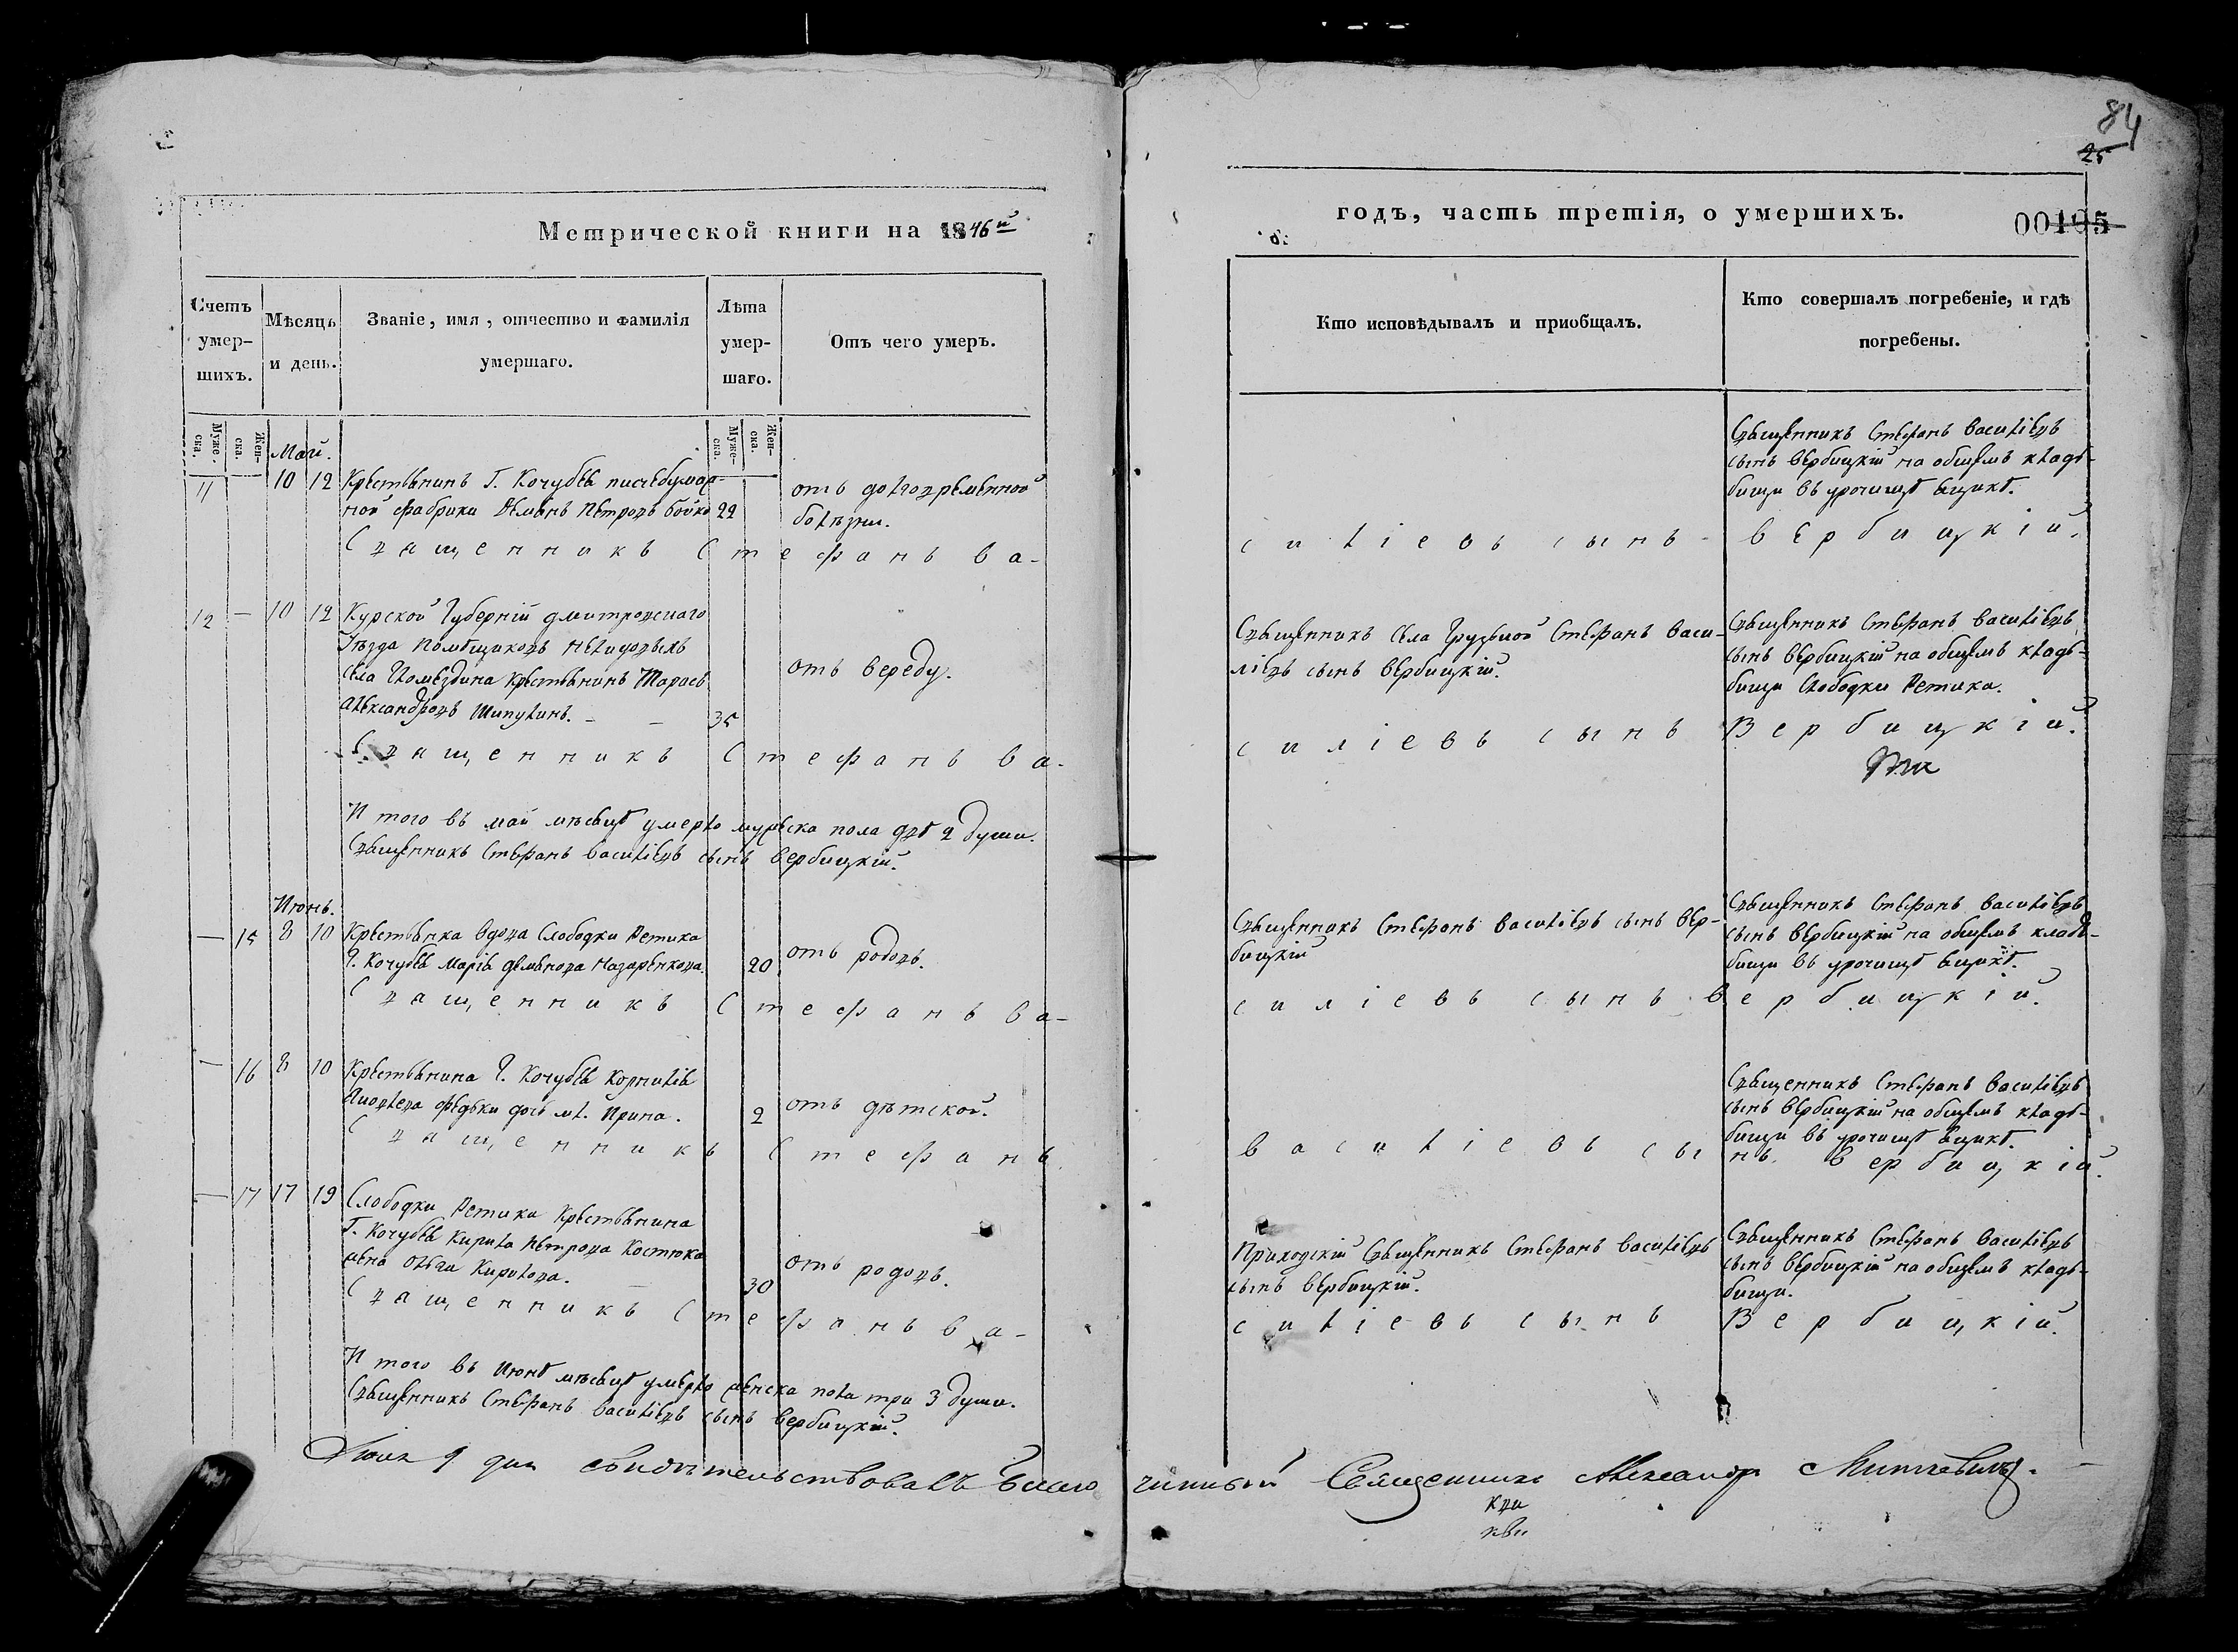 84
25
Метрической книги на 1846й
годъ, часть третія, о умершихъ.
00195
Счетъ умер-шихъ.
Мѣсяцъ и день.
Званіе, имя, отчество и фамилія умершаго.
Лѣта умер-шаго.
Отъ чего умеръ.
Кто исповѣдывалъ и приобщалъ.
Кто совершалъ погребеніе, и гдѣ погребены.
Муже-ска.
Жен-ска.
Муже-ска.
Жен-ска.
Май.
11 10 12 Крестьянинъ Г. Кочубея писчебумаж-
ной фабрики Демьянъ Петровъ Бойко 22
отъ долговременной
болѣзни.
Священникъ Стефанъ Василіевъ
сынъ Вербицкій на общемъ кладь-
бищи въ урочищѣ
Священникъ Стефанъ Ва-
силіевъ сынъ Вербицкій.
12 — 10 12 Курской Губерній Дмитровскаго
Уѣзда помѣщиковъ
села крестьянинъ Тарасъ
Александровъ Шипулинъ. — — 35
отъ вереду.
Священникъ села Грузской Стефанъ Васи-
ліевъ сынъ Вербицкій.
Священникъ Стефанъ Василіевъ
сынъ Вербицкій на общемъ кладь-
бищи Слободки Ретика.
Священникъ Стефанъ Ва-
силіевъ сынъ Вербицкій.
И того въ май мѣсяцѣ умерло мужеска пола двѣ 2 души.
Священникъ Стефанъ Василіевъ сынъ Вербицкій.
Июнь.
— 15 8 10 Крестьянка вдова Слободки Ретика
Г. Кочубея Марія Демьянова Назаренкова. 20
отъ родовъ.
Священникъ Стефанъ Василіевъ сынъ Вер-
бицкій
Священникъ Стефанъ Василіевъ
сынъ Вербицкій на общемъ кладь-
бищи въ урочищѣ
Священникъ Стефанъ Ва-
силіевъ сынъ Вербицкій.
— 16 8 10 Крестьянина Г. Кочубея Корнилія
Федька дочь мл. Ирина. 2
отъ дѣтской.
Священникъ Стефанъ Василіевъ
сынъ Вербицкій на общемъ кладь-
бищи въ урочищѣ
Священникъ Стефанъ
Василіевъ сынъ Вербицкій.
— 17 17 19 Слободки Ретики Крестьянина
Г. Кочубея Кирила Петрова Костюка
жена Кирилова. — 30
отъ родовъ.
Приходскій Священникъ Стефанъ Василіевъ
сынъ Вербицкій.
Священникъ Стефанъ Василіевъ
сынъ Вербицкій на общемъ кладь-
бищи.
Священникъ Стефанъ Ва-
силіевъ сынъ Вербицкій.
И того въ Июнѣ мѣсяцѣ умерло женска пола три 3 души.
Священникъ Стефанъ Василіевъ сынъ Вербицкій.
Июля 9 дня свидѣтельствовалъ Благочинный Священникъ Александръ